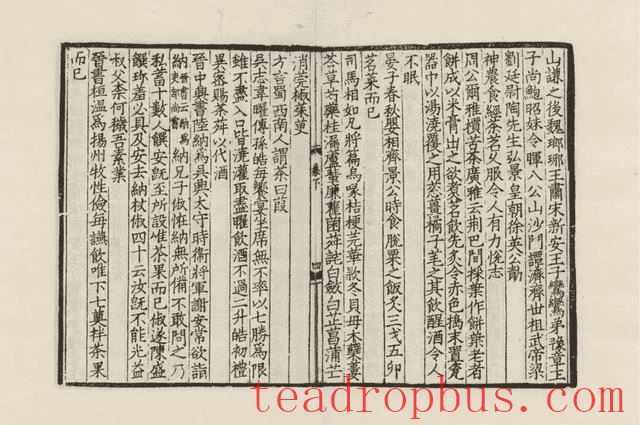 山謙之後魏瑯琊王肅宋新安王子鸞鸞弟豫章王
子尚鮑昭妹令暉八公山沙門譚濟齊世祖武帝梁
劉廷尉陶先生弘景皇朝徐英公勣
神農食經茶茗久服令人有力悅志
周公爾雅檟苦荼廣雅云荆巴間採葉作餅葉老者
餅成以米膏出之欲煮茗飲先炙令赤色搗末置瓷
器中以湯澆覆之用葱薑橘子芼之其飲醒酒令人
不眠
晏子春秋嬰相齊景公時食脫粟之飯炙三戈五卯
茗菜而已
司馬相如凡將篇烏喙桔梗芫華款冬貝母木蘗蔞
芩草芍藥桂漏蘆蜚廉雚菌荈詫白斂白芷菖蒲芒
卷下
四
消莞椒茱萸
方言蜀西南人謂茶曰葭
吳志韋曜傳孫皓每饗宴坐席無不率以七勝爲限
雖不盡入口皆澆灌取盡曜飲酒不過二升皓初禮
異密賜茶荈以代酒
晉中興書陸納爲吳興太守時衛將軍謝安常欲詣
納晉書云納爲吏部尚書納兄子俶恠納無所備不敢問之乃
私蓄十數人饌安既至所設唯茶果而已俶遂陳盛
饌珍羞必具及安去納杖俶四十云汝既不能光益
叔父柰何穢吾素業
晉書桓温爲揚州牧性儉每讌飲唯下七奠拌茶果
而已
teadropbus.com